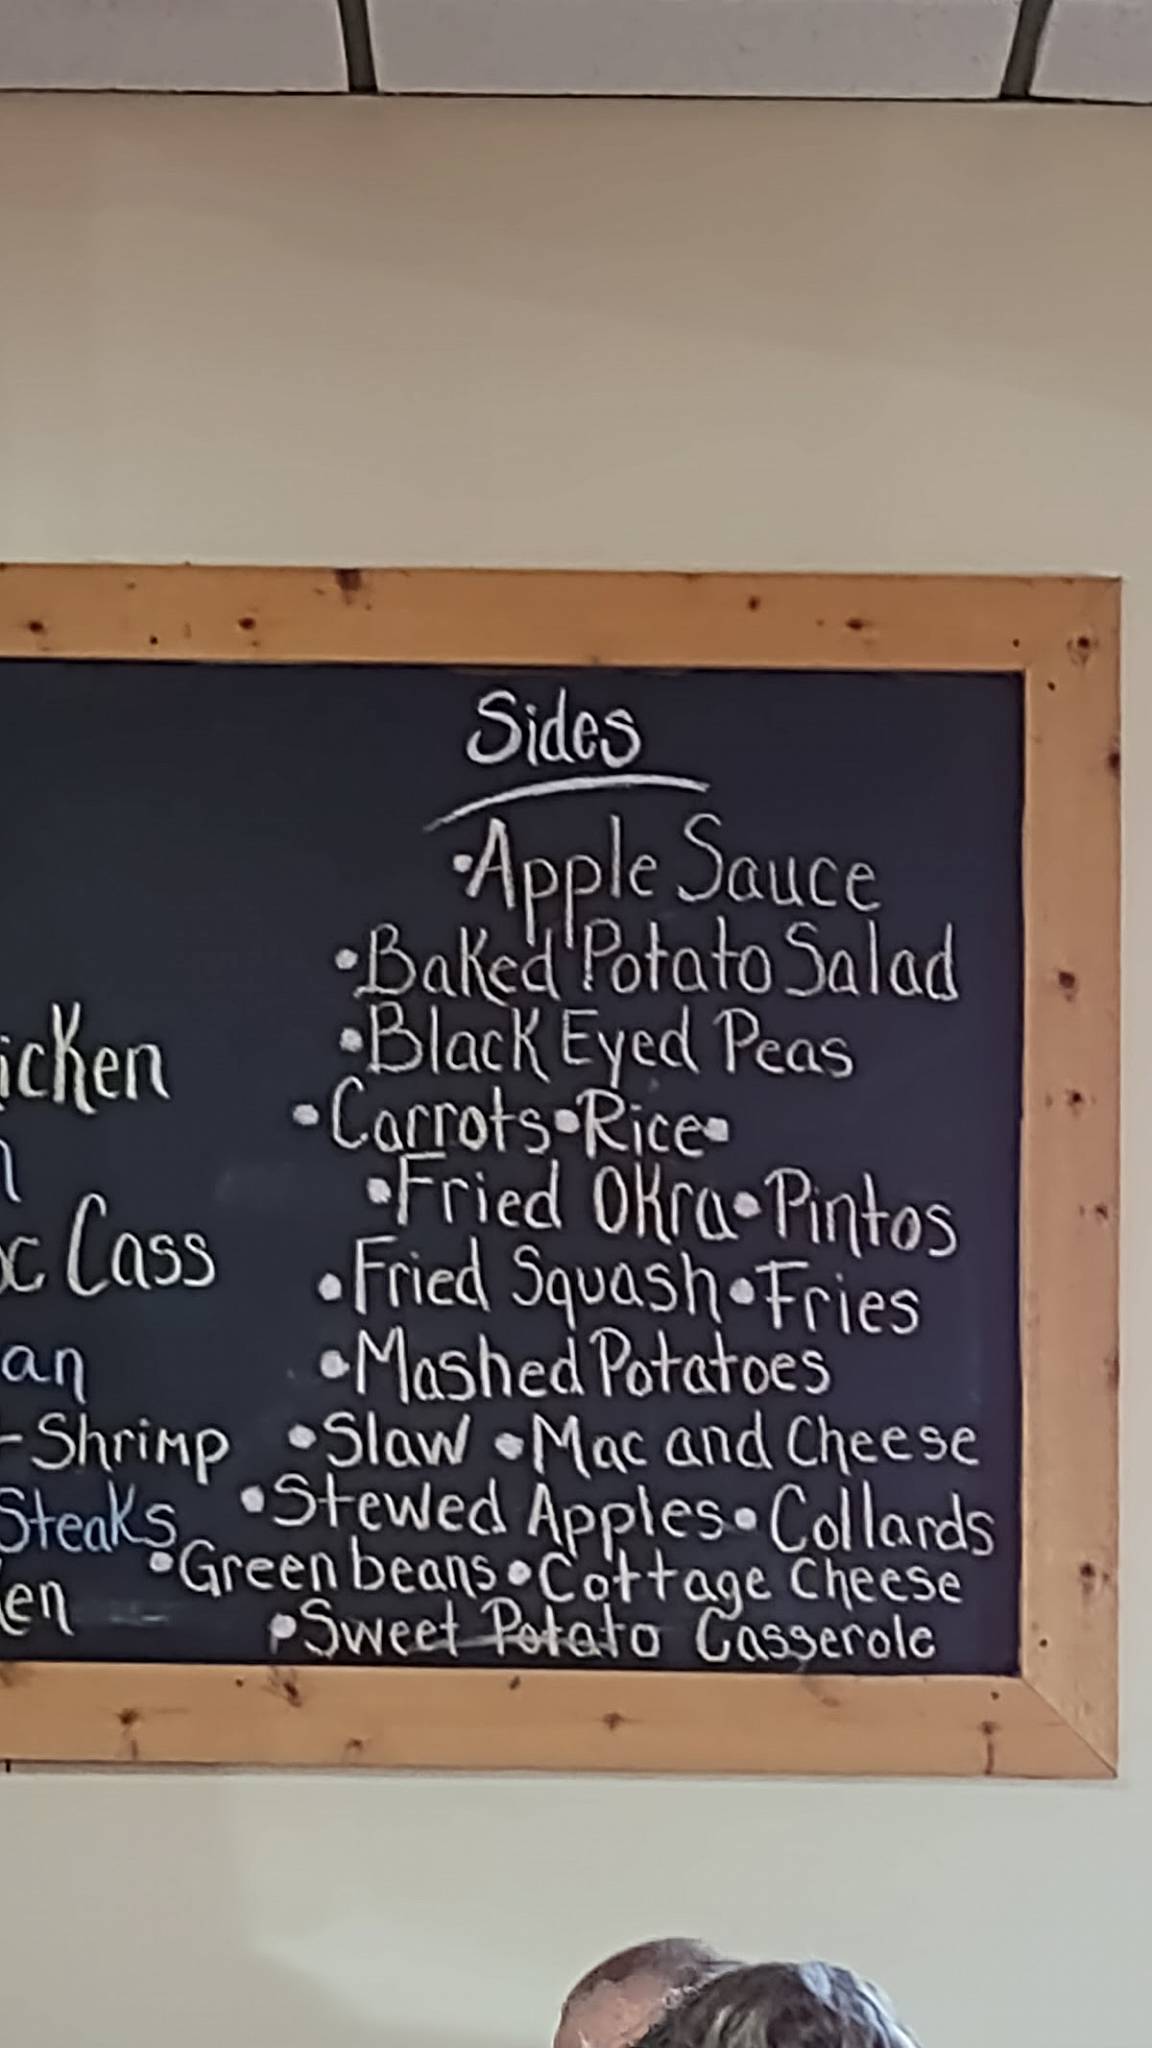 Sides
•Apple Sauce
•Baked Potato Salad
•Black Eyed Peas
•Carrots•Rice•
•Fried Okra•Pintos
•Fried Squash•Fries
•Mashed Potatoes
•Slaw •Mac and Cheese
•Stewed Apples•Collards
•Green beans•Cottage Cheese
•Sweet Potato Casserole
Cass
Shrimp
Steaks